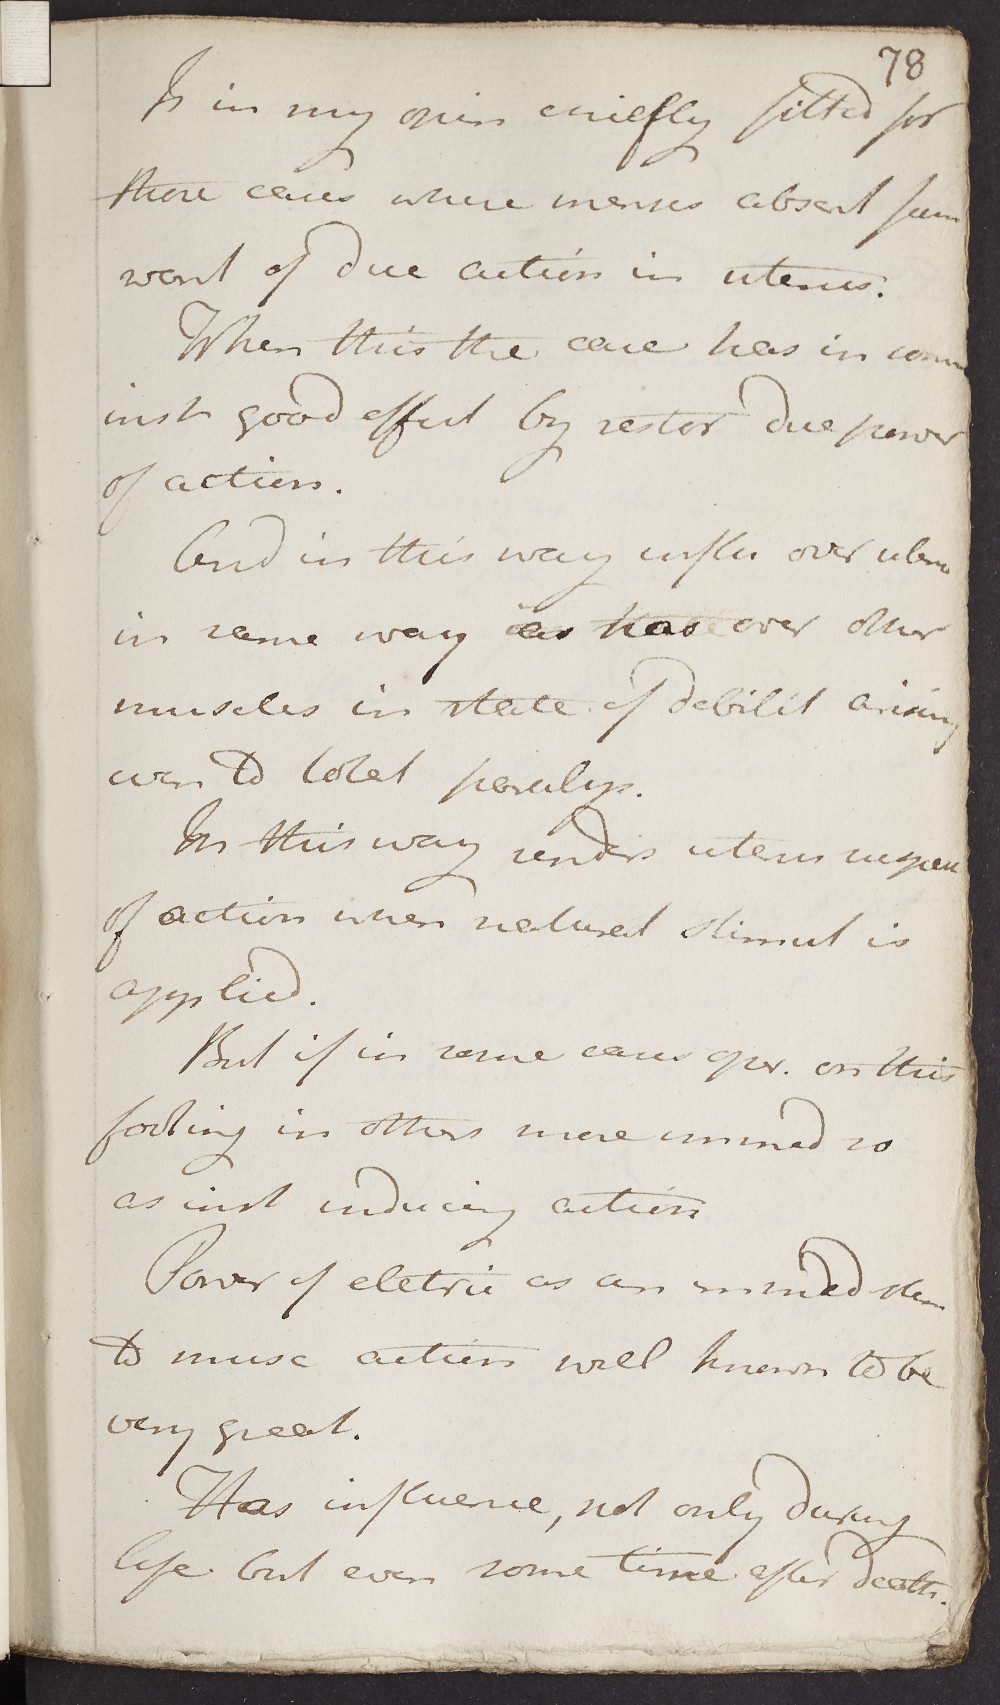 78
Is in my opin chiefly fitted for
those cases where menses absent from
want of due action in uterus.
When this the case has in some
inst good effect by restor due power
of action.
And in this way influ over uterus
in same way as has over other
muscles in state of debilit arising
even to total paralys.
In this way renders uterus suscep
of action when natural stimul is
applied.
But if in some cases oper. on this
footing in others more immed so
as inst inducing action
Power of eletric as an immed stim
to musc action well known to be
very great.
Has influence, not only during
life but even some time after death.